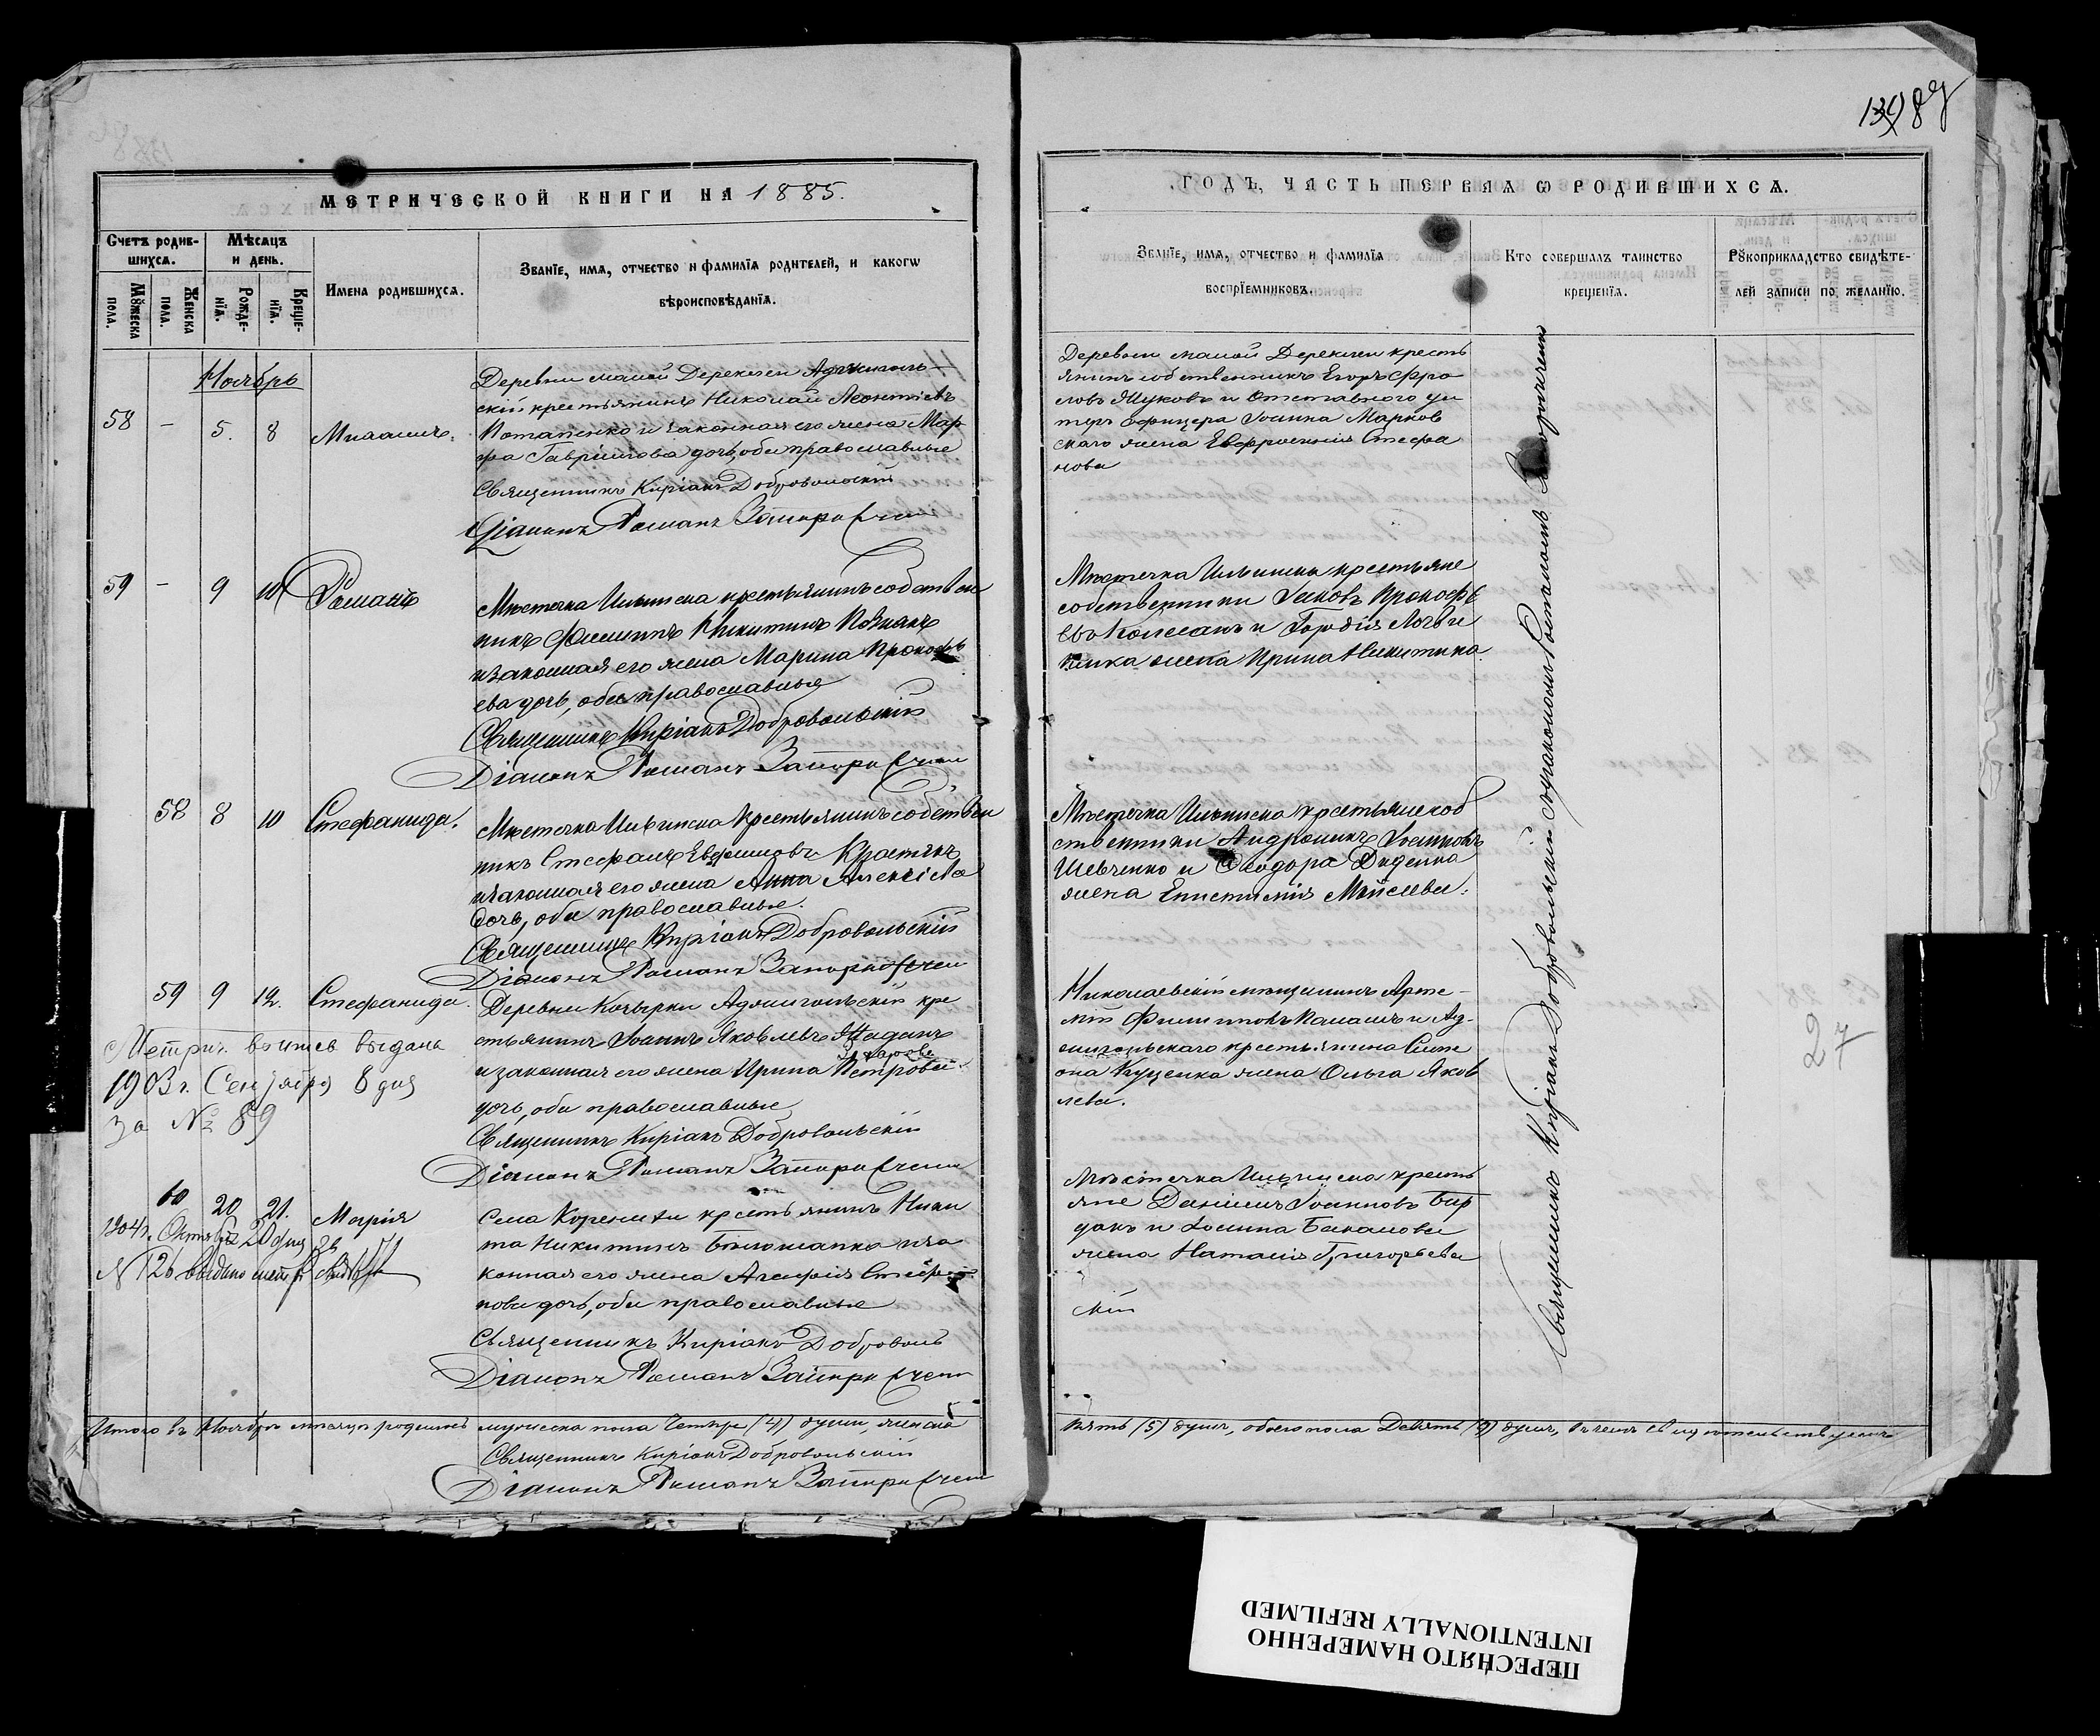 13087
МЕТРИЧЕСКОЙ КНИГИ НА 1885.
ГОДЪ, ЧАСТЬ ПЕРВАЯ Ѡ РОДИВШИХСЯ.
Счетъ родив-
шихся.
Мѣсяцъ
и день.
Мꙋжеска
пола.
Женска
пола.
Рожде-
нїя.
Креще-
нїя.
Имена родившихся.
Званїе, имя, отчество и фамилїя родителей, и какогѡ
вѣроисповѣданїя.
Званїе, имя, отчество и фамилїя
воспрїемниковъ.
Кто совершалъ таинство
крещенїя.
Рꙋкоприкладство свидѣте-
лей записи по желанїю.
Ноябрь
58 - 5. 8
Деревни малой Дерекли Аджиголь-
скій крестьянинъ Николай Леонтіевъ
Потапенко и законная его жена Мар
фа Гаврилова дочь, оба православные
Священникъ Киріакъ Добровольскій
Діаконъ Романъ Запорожченко
Деревни малой Дереклеи кресть
янинъ собственникъ Егоръ Фро
ловъ Жуковъ и Отставного ун
теръ офицера Іоанна Марков
скаго жена Евфросинія Стефа
нова
59 - 9 10 Романъ
Мѣстечка Ильинска крестьянинъ собствен
никъ Филиппъ Никитинъ
и законная его жена Марина Прокофь
ева дочь, оба православные
Священникъ Киріакъ Добровольскій
Діаконъ Романъ Запорожченко
Мѣстечка Ильинска крестьяне
собственники Іаковъ Прокофь
евъ и Гордія
жена Ирина Никитина
58 8 10 Стефанида.
Мѣстечка Ильинска Крестьянинъ собствен
никъ Стефанъ Евфимовъ
и законная его жена Анна Алексіева
дочь, оба православные.
Священникъ Киріакъ Добровольскій
Діаконъ Романъ Запорожченко
Мѣстечка Ильинска крестьяне соб
ственники Андроникъ Іоанновъ
Шевченко и Ѳеодора Диденка
жена Епистимія Моисеева.
59 9 12. Стефанида.
Метрич. выпись выдана
1903 г. Сентября 8 дня
за № 89
Деревни Козырки Аджигольскій кре
стьянинъ Іоаннъ Яковлевъ
и законная его жена Ирина Петрова
дочь, оба православные
Священникъ Киріакъ Добровольскій
Діаконъ Романъ Запорожченко
Николаевскій мѣщанинъ Арте-
мій Филипповъ и Ад-
жигольскаго крестьянина Сим
она Куценка жена Ольга Яков
лева.
27
60 20 21. Марія
1904 г. Октября 20 дня за
№ 126 выдано метр
Села Коренихи крестьянинъ Ники
та Никитинъ Бѣлошапка и за
конная его жена Агафія Стефа
нова дочь, оба православные
Священникъ Киріакъ Доброволь
скій
Діаконъ Романъ Запорожченко
Мѣстечка Ильинска кресть
яне Даніилъ Іоанновъ Бур
дакъ и Іоанна Бакалова
жена Наталія Григорьева
Священникъ Киріакъ Добровольскій съ діакономъ Романомъ Запорожченкомъ
Итого въ Ноябрѣ мѣсяцѣ родилось мужеска пола Четыре (4) души, женска
пять (5) душъ, обоего пола Девять (9) душъ, въ чемъ свидѣтельствуемъ
Священникъ Киріакъ Добровольскій
Діаконъ Романъ Запорожченко
ПЕРЕСНЯТО НАМЕРЕННО
INTENTIONALLY REFILMED